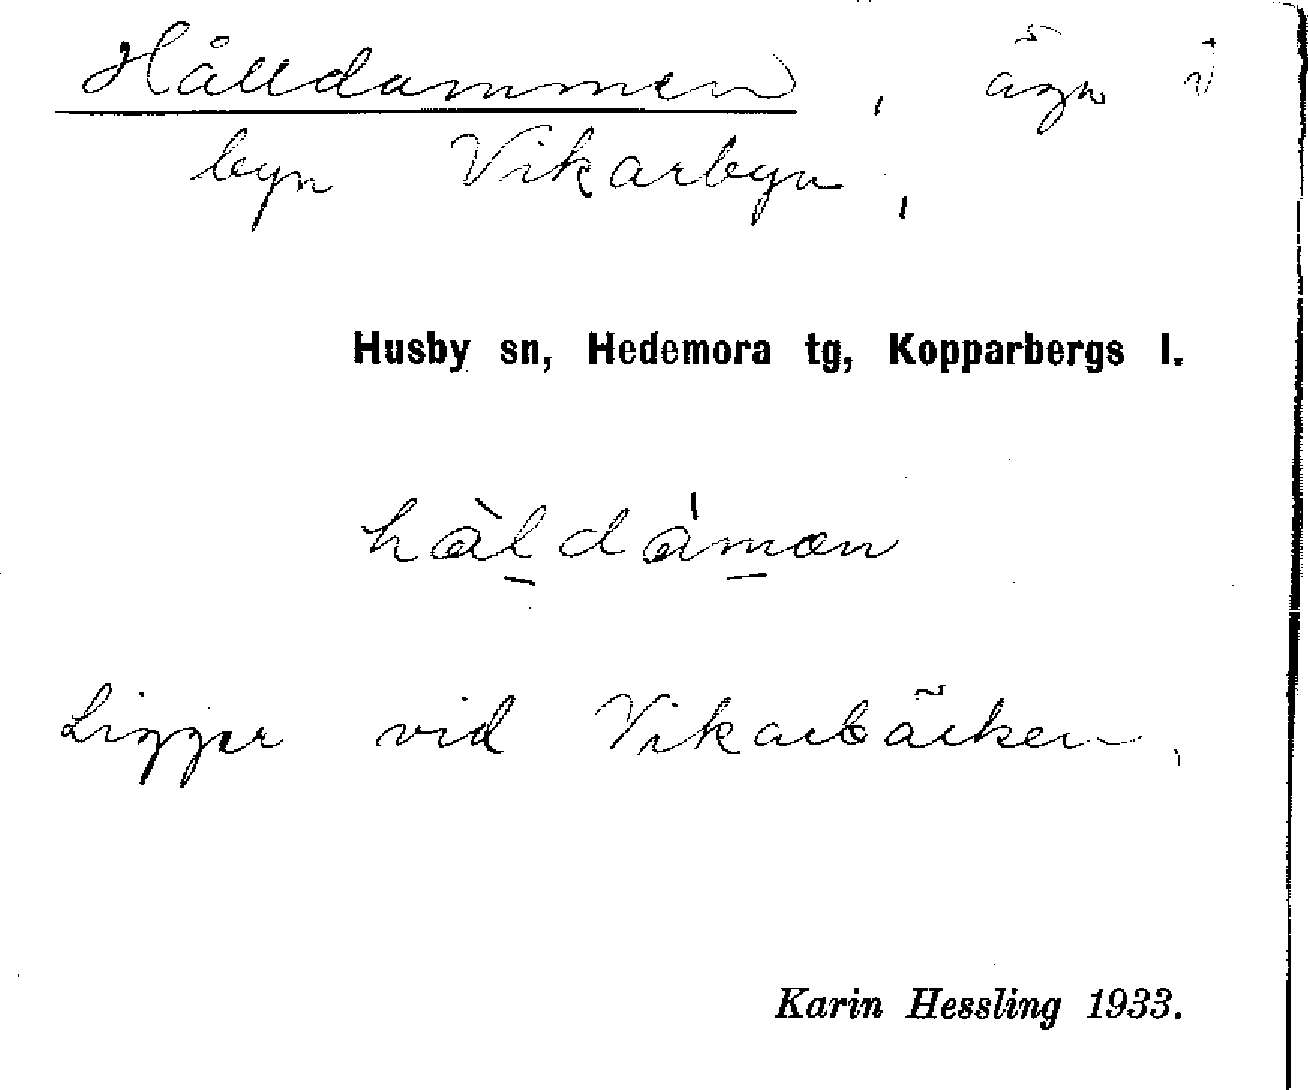 Hålldammen, ägn i
byn Vikarbyn,
Husby sn, Hedemora tg, Kopparbergs l.
hàldámən
Ligger vid Vikarbäcken.
Karin Hessling 1933.